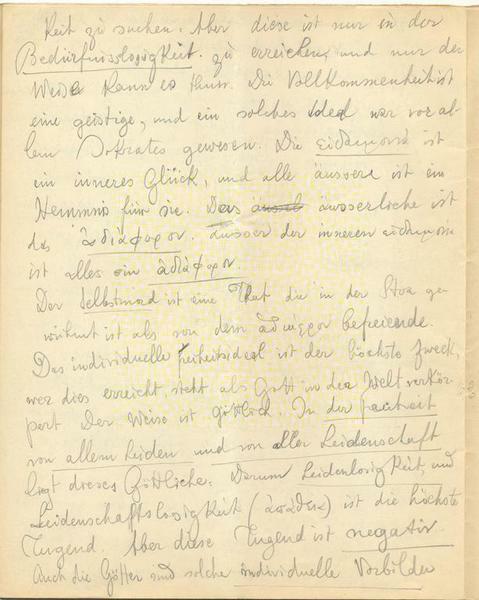 keit zu suchen. Aber diese ist nur in der
Bedürfnisslosigkeit zu erreichen, und nur der
Weise kann es thun. Die Vollkommenheit ist
eine geistige, und ein solches Ideal war vor al-
lem Sokrates gewesen. Die εὐδαιμονία ist
ein inneres Glück, und alle äussere ist ein
Hemmnis für sie. Das äusserliche ist
das ἀδιάφορον. ausser der inneren εὐδαιμονία
ist alles ein ἀδιάφορ.
Der Selbstmord ist eine That die in der Stoa ge-
rühmt ist als von dem ἀδιάφορον befreiende.
Das individuelle Freiheitsideal ist der höchste Zweck,
wer dies erreicht, steht als Gott in der Welt verkör-
pert. Der Weise ist göttlich. In der Freiheit
von allem Leiden und von aller Leidenschaft
liegt dieses Göttliche. Darum Leidenlosigkeit und
Leidenschaftslosigkeit (ἀπάθεια) ist die höchste
Tugend. Aber diese Tugend ist negativ.
Auch die Götter sind solche individuelle Vorbilder